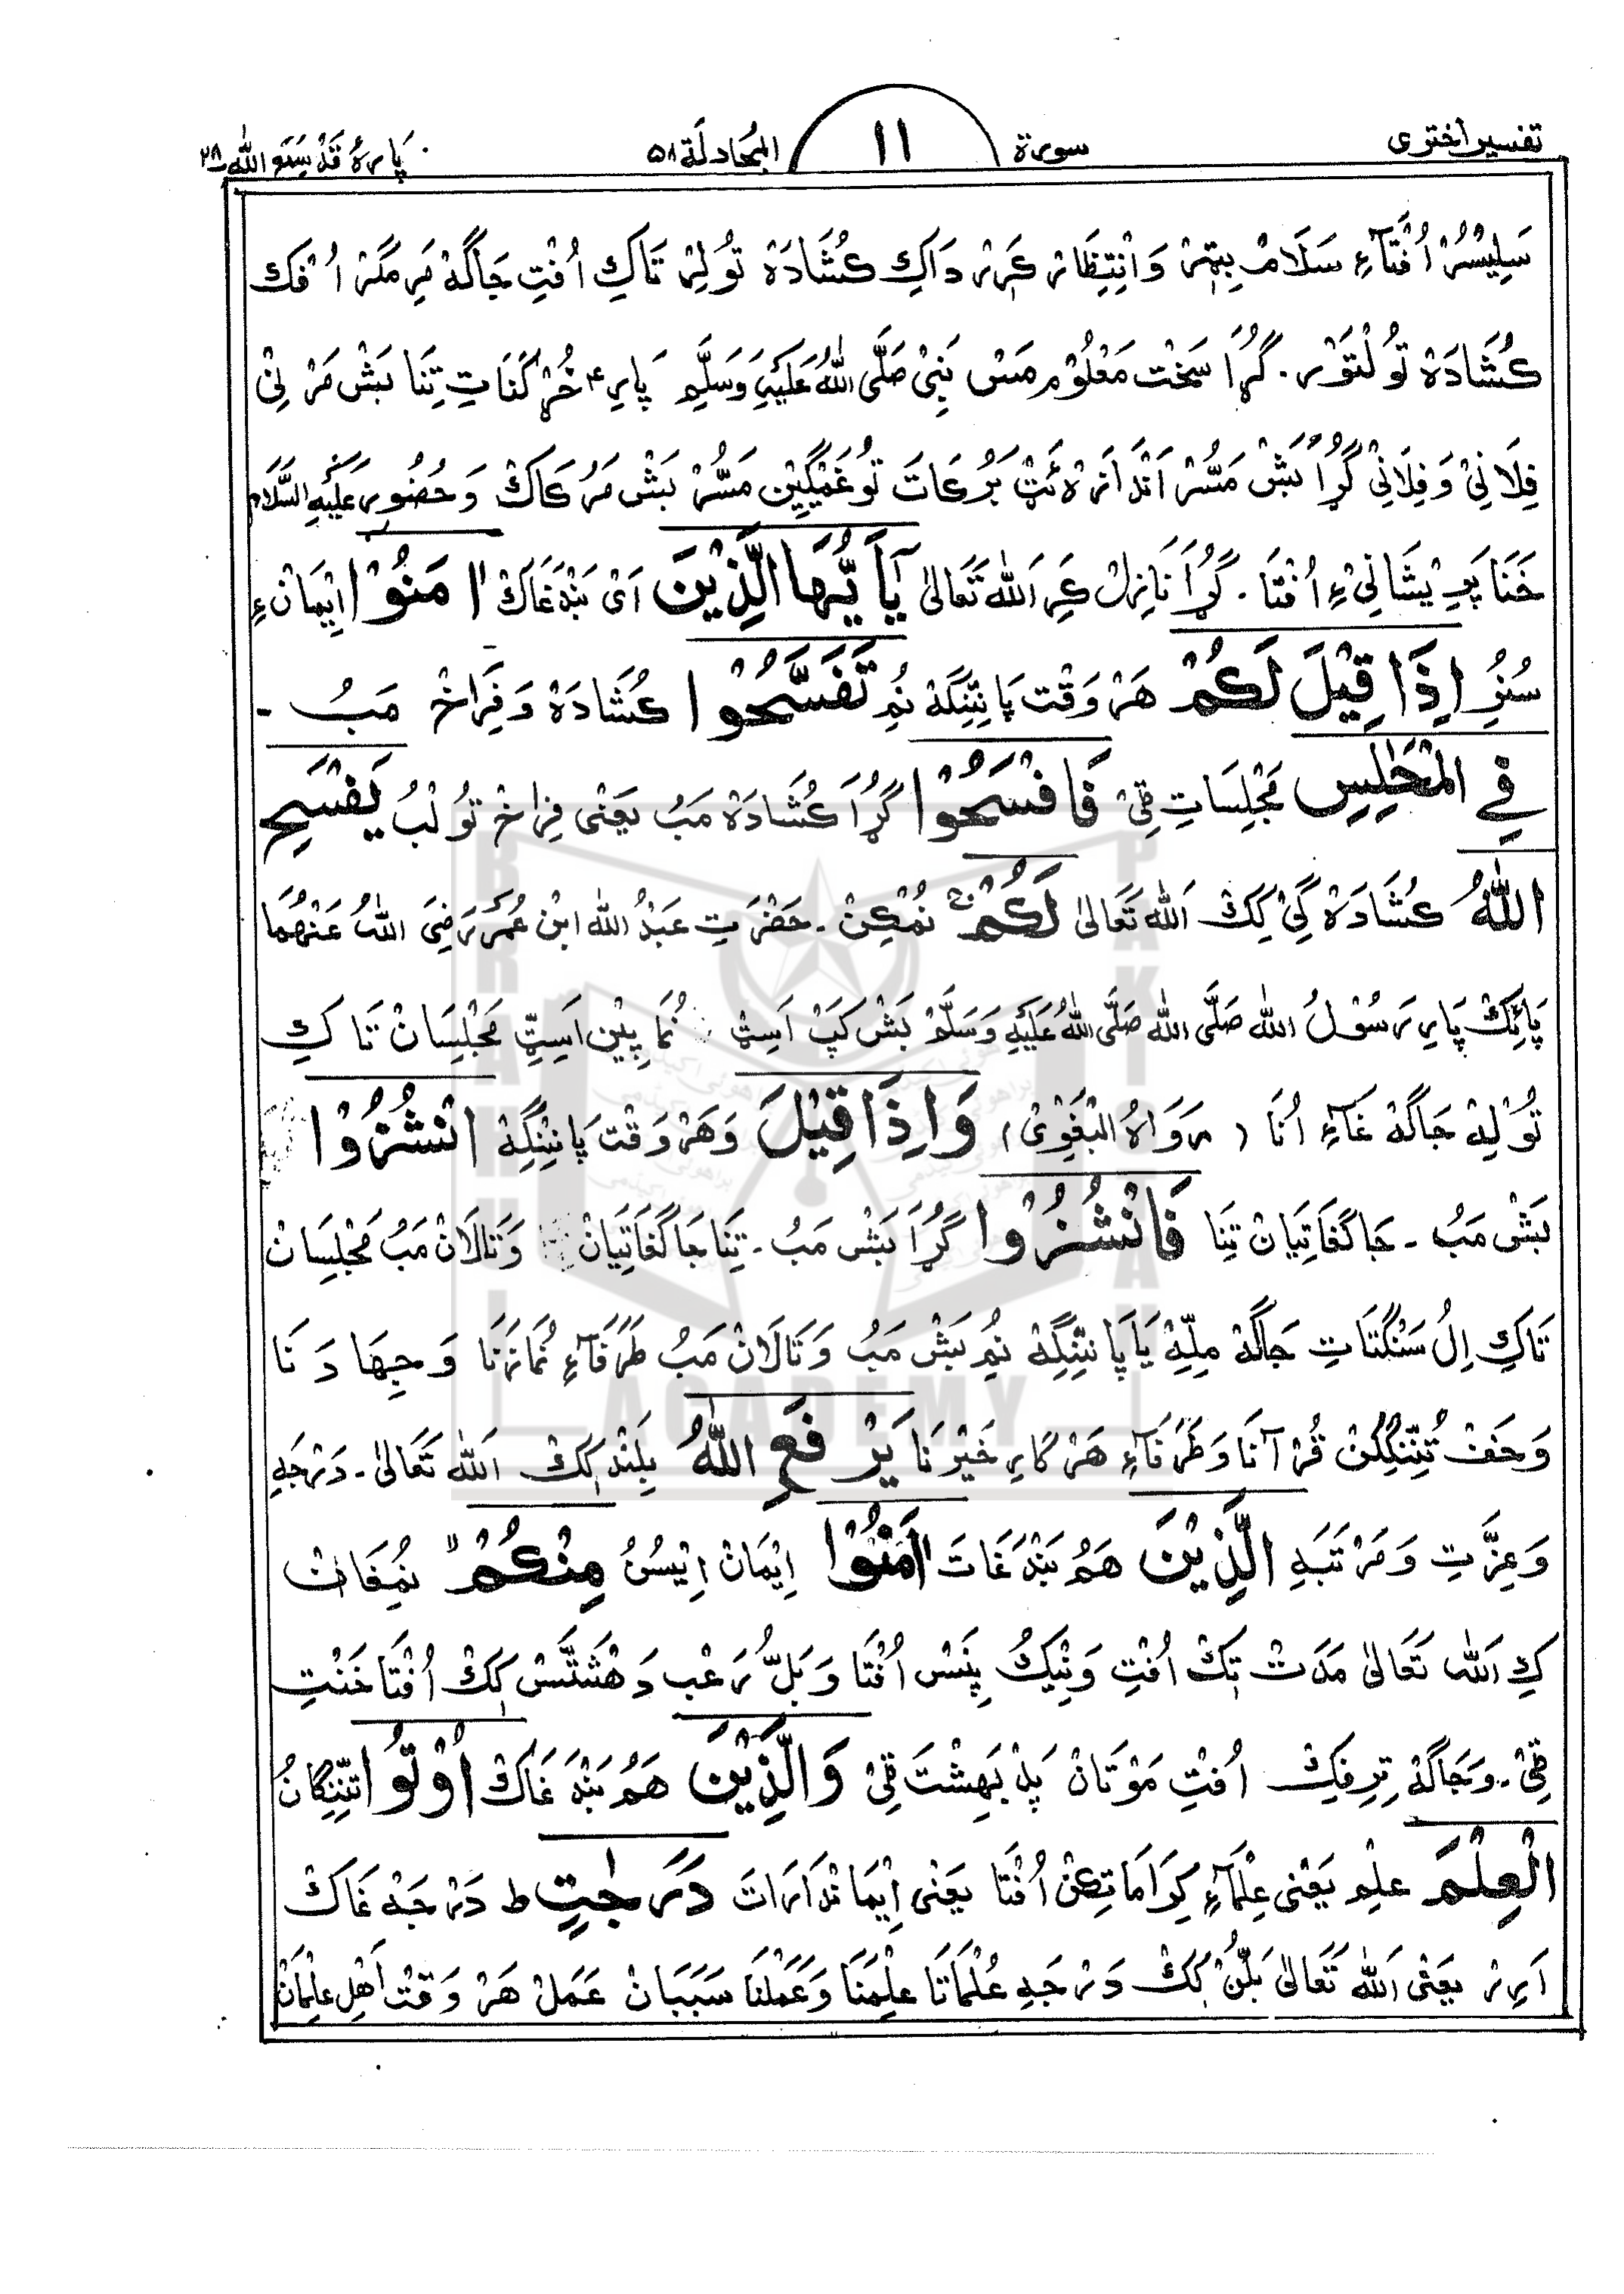 تفسیر أختری سورة ١١ المجادلة ۵۸ پارهٔ قَدْ سَمِعَ اللّٰه ۲۸
سَلِیْسُرْ اُفْتَآءِ سَلَامْ بِیٹہْ وَانْتِظَارْ کَرِیرْ دَاکِ کُشَادَہْ تُولِرْ تَاکِ اُفْتِ جَاگَہْ مَرِ مَگَرْ اُفْک
کُشَادَہْ تُولْتَوْر. گُڑَا سَخْت مَعْلُوْم مَسْ نَبِیْ صَلَّی اللّٰهُ عَلَیْهِ وَسَلَّم پَارِءْ خُڑْکَنَاتِ تِنَا بَشْ مَرْ نِیْ
فِلَانِیْ وَفِلَانِیْ گُڑَا بَشْ مَسُّرْ اَنْدَازَہْ ئَٹْ بَرُکَاتَ تُوغَمْگِیْن مَسُّرْ بَشْ مَرُکَاکْ وَحُضُور عَلَیْهِ السَّلَام
خَنَا پَرِیْشَانِیْ ءِ اُفْتَا. گُڑَا نَازِلْ کَرِ اَللّٰه تَعَالیٰ یٰۤاَیُّهَا الَّذِیْنَ اَیْ بَنْدَغَاکْ اٰمَنُوْا اِیْمَان ءِ
سُنِرُ اِذَا قِیْلَ لَکُمْ هَرْ وَقْت پَانِنِّگَہْ نُم تَفَسَّحُوْا کُشَادَہْ وَفِرَاخْ مَبُ -
فِی الْمَجٰلِسِ مَجْلِسَاتِ ٹِیْ فَافْسَحُوْا گُڑَا کُشَادَہْ مَبُ یَعْنِی فِرَاخْ تُولْبُ یَفْسَحِ
اللّٰهُ کُشَادَہْ گِیْ کِکْ اَللّٰه تَعَالیٰ لَکُمْ نُمْکِنْ - حَضْرَتِ عَبْدُ اللّٰه ابْن عُمَر رَضِیَ اللّٰهُ عَنْهُمَا
پَائِکْ پَارِ رَسُوْلُ اللّٰه صَلَّی اللّٰه صَلَّی اللّٰهُ عَلَیْهِ وَسَلَّمْ بَشْ کَپْ اَسِٹْ نُمَا پِیْن اَسِٹِّ مَجْلِسَانْ تَا کِ
تُوْلِہْ جَاگَہْ غَآءِ اُنَا (رَوَاهُ الْبَغَوِیْ) وَاِذَا قِیْلَ وَهَرْ وَقْت پَانِنِّگِہْ انْشُزُوْا
بَشْ مَبُ - جَاگَغَاتِیَانْ تِنَا فَانْشُزُوْا گُڑَا بَشْ مَبُ - تِنَا جَاگَغَاتِیَانْ وَتَالَانْ مَبُ مَجْلِسَانْ
تَاکِ اِلُ سَنْگَتَاتِ جَاگَہْ مِلِّہْ یَا پَانِنِّگِہْ نُم بَشْ مَبُ وَتَالَانْ مَبُ طَرَفَآءِ نُمَازَنَا وَجِهَادَنَا
وَحَفْ تُنِنْگِنْ قُرْآنَا وَطَرَفَآءِ هَرْ کَارِ خَیْرَنَا یَرْفَعِ اللّٰهُ بِلَنْد کِکْ اَللّٰه تَعَالیٰ - دَرْجَہِ
وَعِزَّتِ وَمَرْتَبَہِ الَّذِیْنَ هَمُ بَنْدَغَاتَ اٰمَنُوْا اِیْمَانْ اِیْسُنُ مِنْکُمْ نُمِغَانْ
کِ اَللّٰه تَعَالیٰ مَدَتْ تِکْ اُفْتِ وَنِیْکُ پِنَسْ اُفْتَا وَبَلُّ رَعْب دَهْشَتَّسْ کِکْ اُفْتَا خَنْتِ
ٹِیْ - وَجَاگَہْ تِرِفِکْ اُفْتِ مَوْتَانْ پَدْ بَهِشْتَ ٹِیْ وَالَّذِیْنَ هَمُ بَنْدَغَاکْ اُوْتُوا تِنِّنْگَانُ
الْعِلْمَ عِلْم یَعْنِی عِلْمَآءِ کِرَامَاتِکِنْ اُفْتَا یَعْنِی اِیْمَانْدَارَاتَ دَرَجٰتٍ ط دَرْجَہْ غَاکْ
اَرِرْ یَعْنِی اَللّٰه تَعَالیٰ بَلُّنْ کِکْ دَرْجَہِ عُلْمَاتَا عِلْمَنَا وَعَمْلَنَا سَبَبَانْ عَمَلْ هَرْ وَقْت اَهْلِ عِلْمَانْ
BRAHUI ACADEMY PAKISTAN